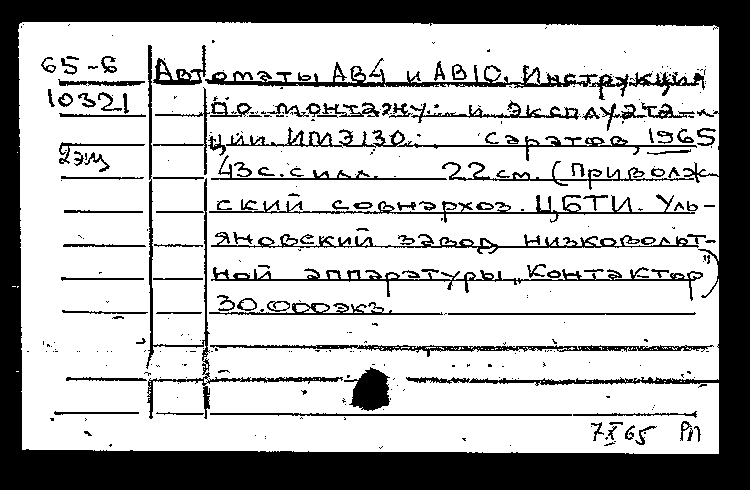 65-6 Автоматы АВ4 и АВ10. Инструкция
10321 по монтажу и эксплуата-
ции. ИМЭ130. Саратов, 1965
2экз 43 с. с илл. 22 см. (Приволж-
ский совнархоз. ЦБТИ. Уль-
яновский завод низковольт-
ной аппаратуры „Контактор")
30.000экз.
7 X 65 РП